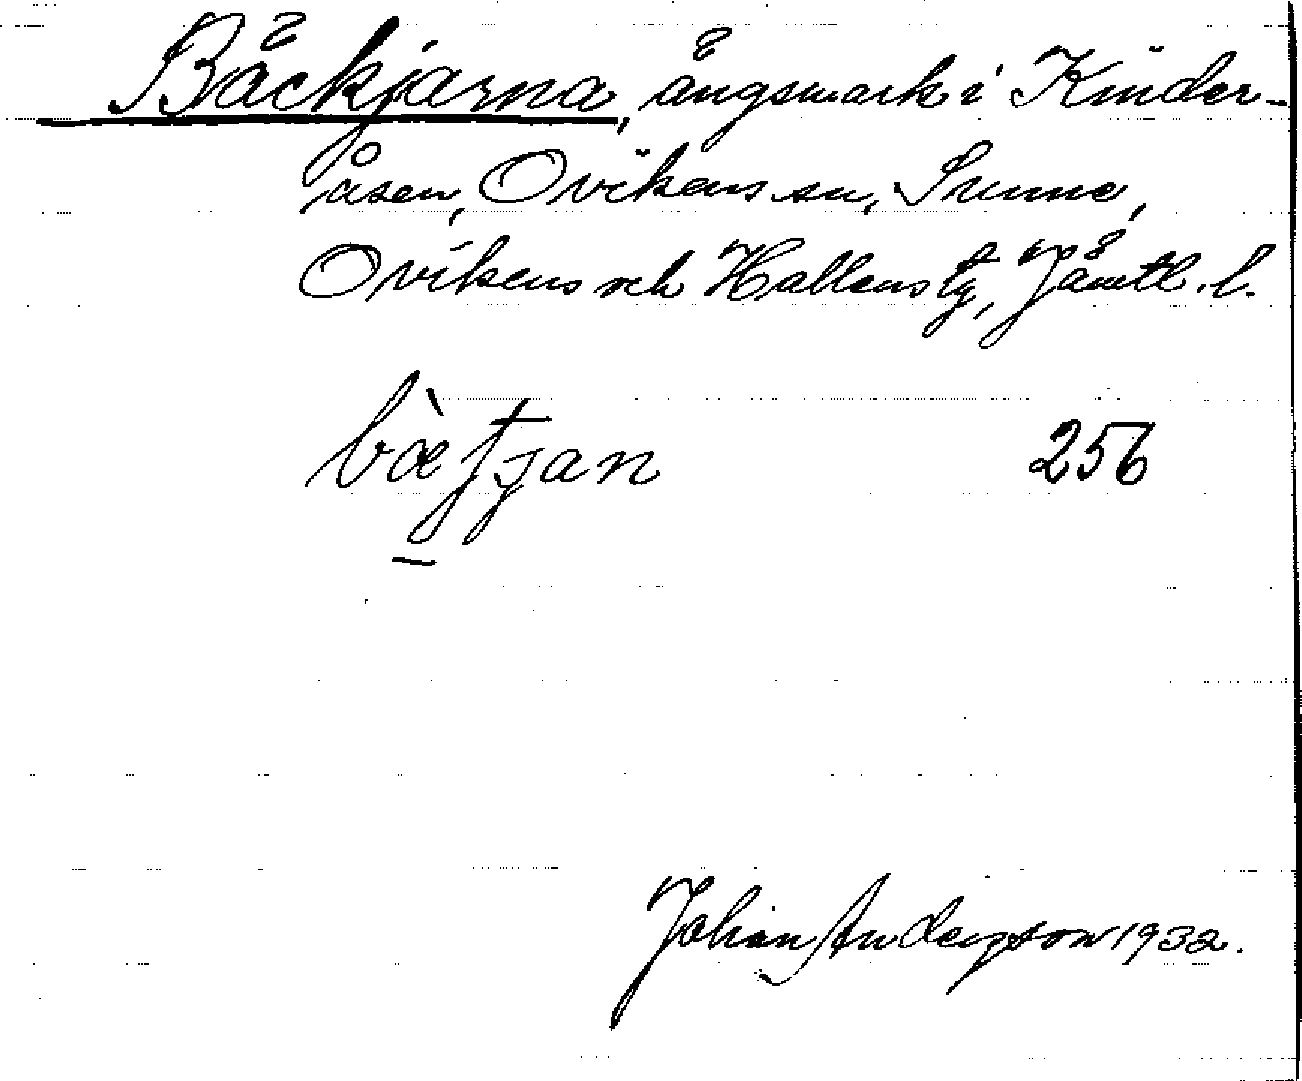 Bäckjärna, ängsmark i Kinder-
åsen, Ovikens sn, Sunne,
Ovikens och Hallens tg, Jämtl. l.
256
Johan Anderson 1932.